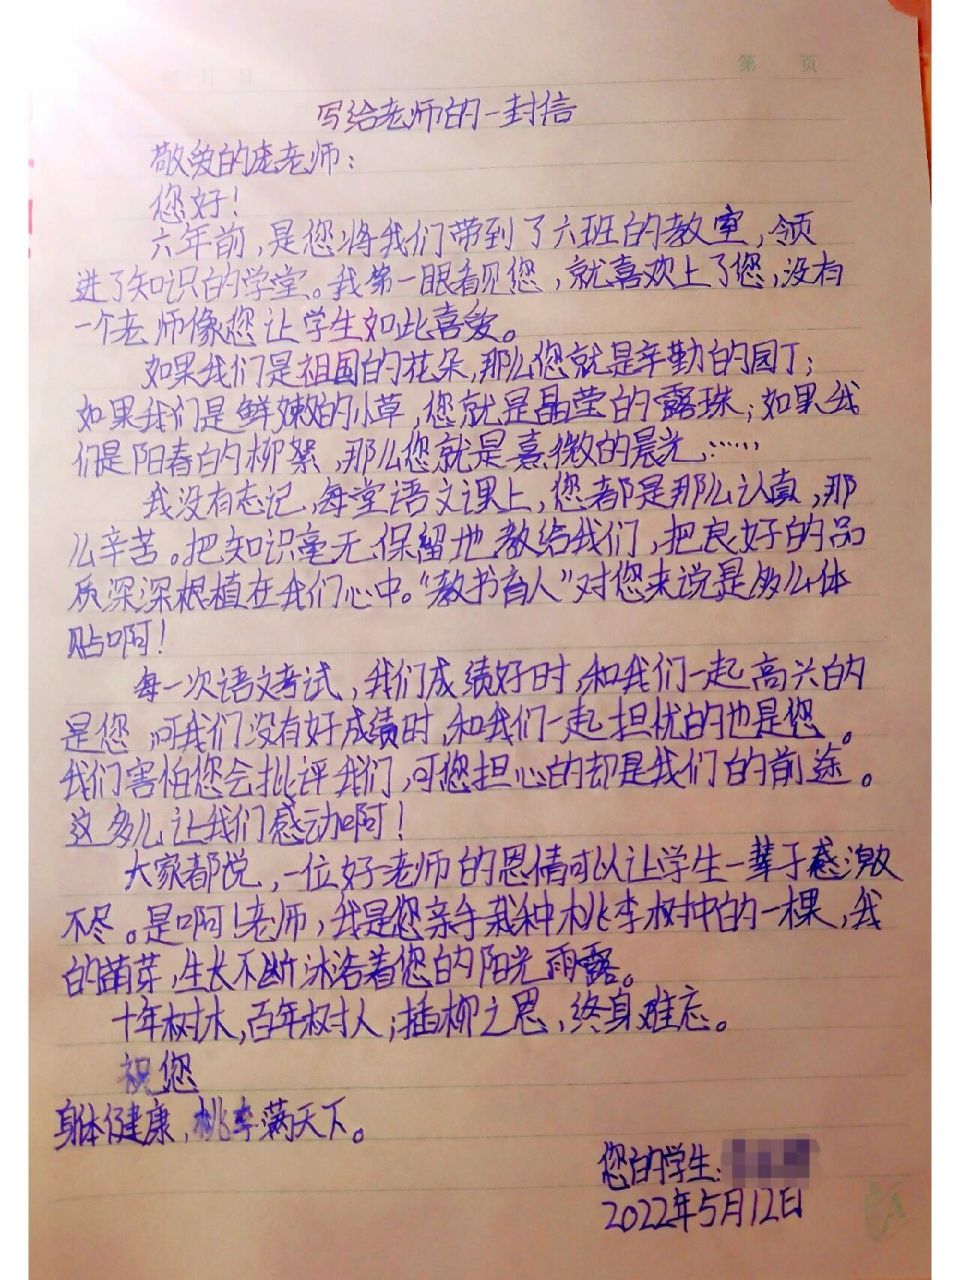 年 月 日
第 页
写给老师的一封信
敬爱的庞老师：
您好！
六年前，是您将我们带到了六班的教室，领
进了知识的学堂。我第一眼看见您，就喜欢上了您，没有
一个老师像您让学生如此喜爱。
如果我们是祖国的花朵，那么您就是辛勤的园丁；
如果我们是鲜嫩的小草，您就是晶莹的露珠；如果我
们是阳春的柳絮，那么您就是熹微的晨光……
我没有忘记，每堂语文课上，您都是那么认真，那
么辛苦。把知识毫无保留地教给我们，把良好的品
质深深根植在我们心中。“教书育人”对您来说是多么体
贴啊！
每一次语文考试，我们成绩好时，和我们一起高兴的
是您，可我们没有好成绩时，和我们一起担忧的也是您。
我们害怕您会批评我们，可您担心的却是我们的前途。
这多么让我们感动啊！
大家都说，一位好老师的恩情可以让学生一辈子感激
不尽。是啊！老师，我是您亲手栽种桃李树中的一棵，我
的萌芽，生长不断沐浴着您的阳光雨露。
十年树木，百年树人；插柳之恩，终身难忘。
祝您
身体健康，桃李满天下。
您的学生：
2022年5月12日